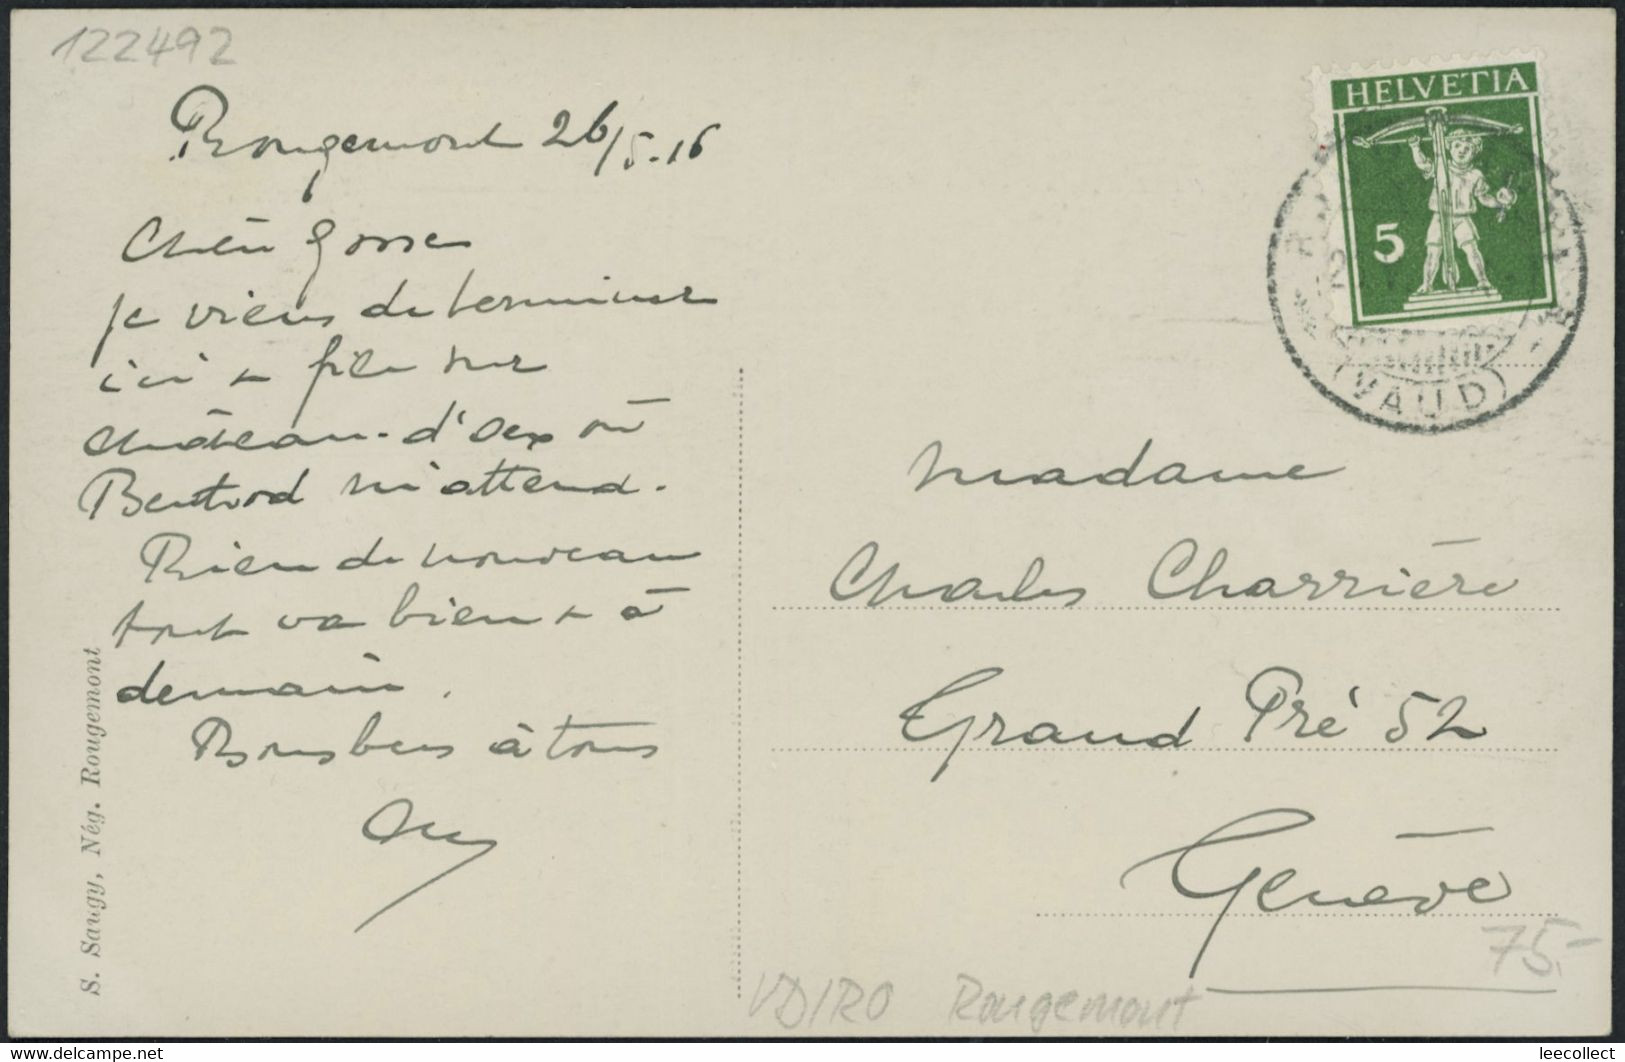 122492
Rougemont 26/5.16
Chère gosse
je viens de terminer
ici & file sur
Château-d'Oex où
m'attend.
Rien de nouveau
tout va bien & à
demain.
Bons becs à tous
S. Saugy, Nég. Rougemont
HELVETIA
5
(VAUD)
Madame
Charles Charrière
Grand Pré 52
Genève
75.-
VD/RO Rougemont
leecollect